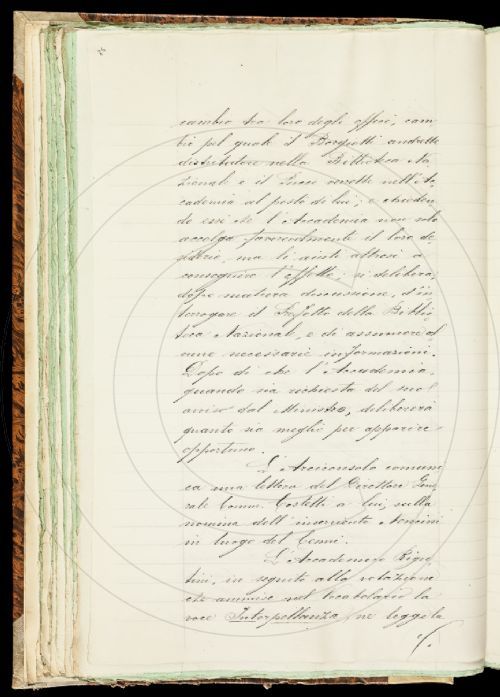 cambio tra loro degli offici, cam
bio pel quale il Borgiotti andrebbe
distributore nella Biblioteca Na
zionale e il Pucci verrebbe nell'Ac
cademia al posto di lui; e chieden
do essi che l'Accademia non solo
accolga favorevolmente il loro de
siderio, ma li aiuti altresì a
conseguire l'effetto; si delibera,
dopo matura discussione, d'in
terrogare il Prefetto della Biblio
teca Nazionale, e di assumere al
cune necessarie informazioni.
Dopo di che l'Accademia,
quando sia richiesta del suo
avviso dal Ministro, delibererà
quanto sia meglio per apparire
opportuno.
L'Arciconsolo comuni
ca una lettera del Direttore Gene
rale Comm. Costetti a lui, sulla
nomina dell'inserviente Nencini
in luogo del Cenni.
L'Accademico Rigu
tini, in seguito alla votazione
che ammise nel vocabolario la
voce Interpellanza, ne legge la